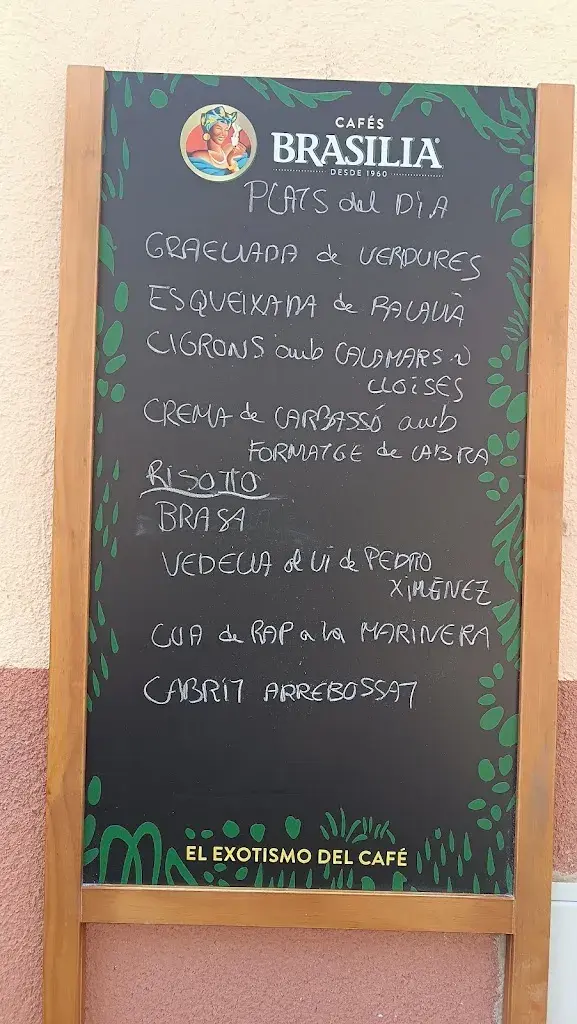 CAFÉS
BRASILIA
DESDE 1960
PLATS del DIA
GRAELLADA de VERDURES
ESQUEIXADA de BACALLÀ
CIGRONS amb CALAMARS i
CLOÏSES
CREMA de CARBASSÓ amb
FORMATGE de CABRA
RISOTTO
BRASA
VEDELLA al VI de PEDRO
XIMÉNEZ
CUA de RAP a la MARINERA
CABRIT ARREBOSSAT
EL EXOTISMO DEL CAFÉ